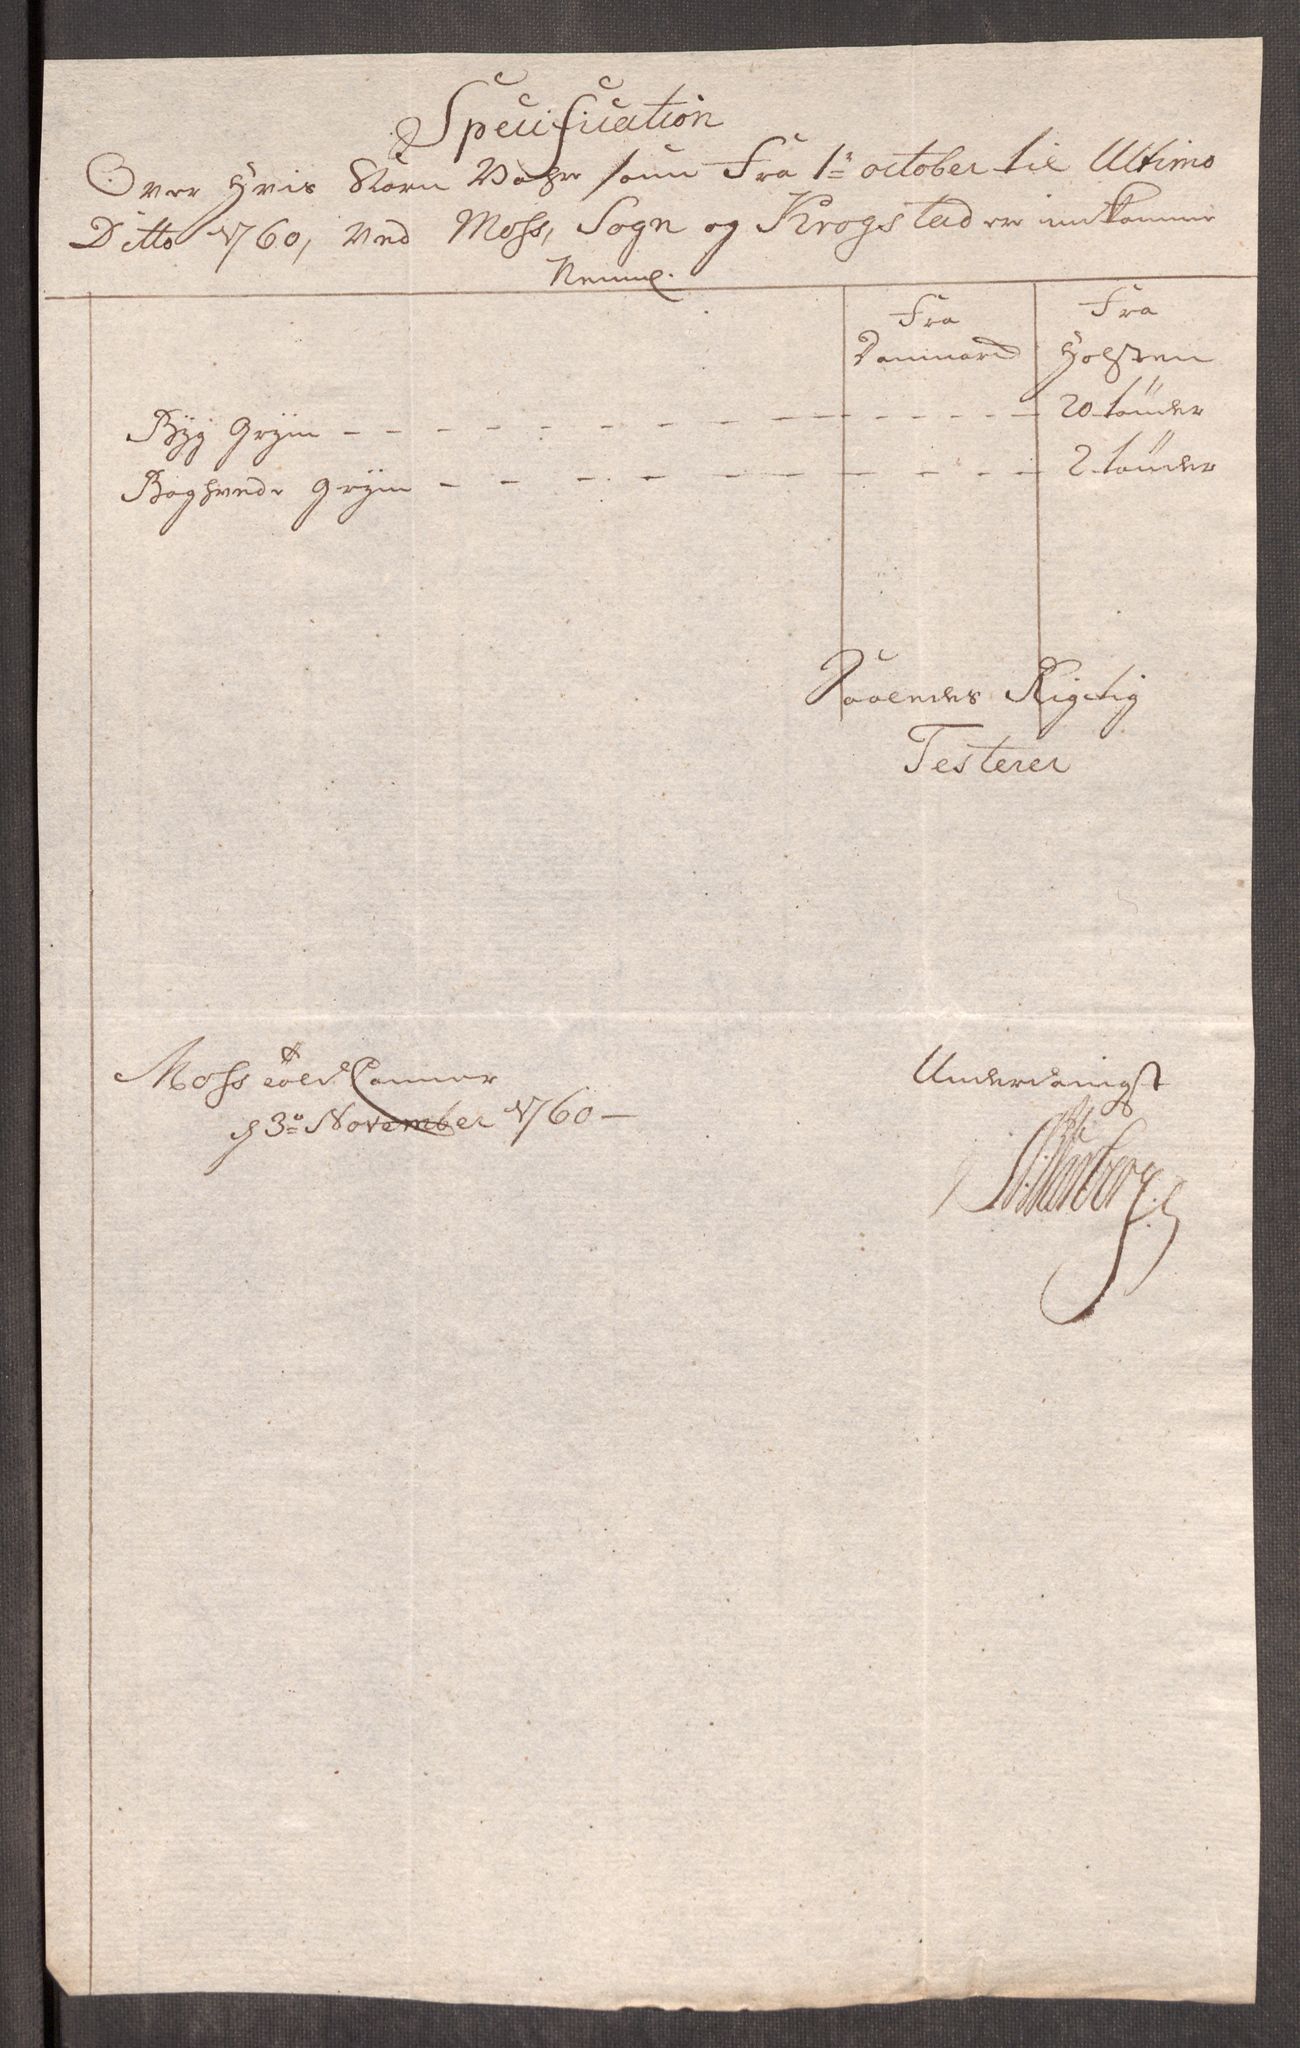 Specification
Over Hvis Korn Vahre som Fra 1ᵉ october til Ultimo
Ditto 1760, Ved Moss, Sogn og Krogstad er indkommen
Neml.
Fra
Danmark
Fra
Holsten
Byg Gryn - - - - - - - - - - 20 tönder
Boghvede Gryn - - - - - - - - - 2 tönder
Saaledes Rigtig
Testerer
Moss Told Cammer
d 3º November 1760 -
Underdanigst